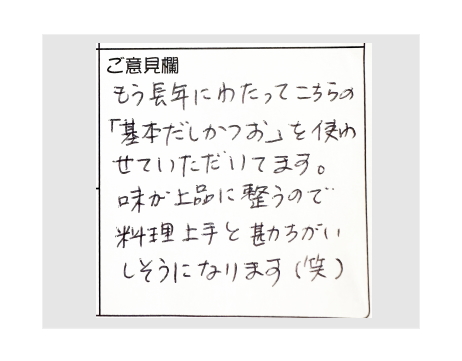 ご意見欄
もう長年にわたってこちらの
「基本だしかつお」を使わ
せていただいてます。
味が上品に整うので
料理上手と勘ちがい
しそうになります(笑)